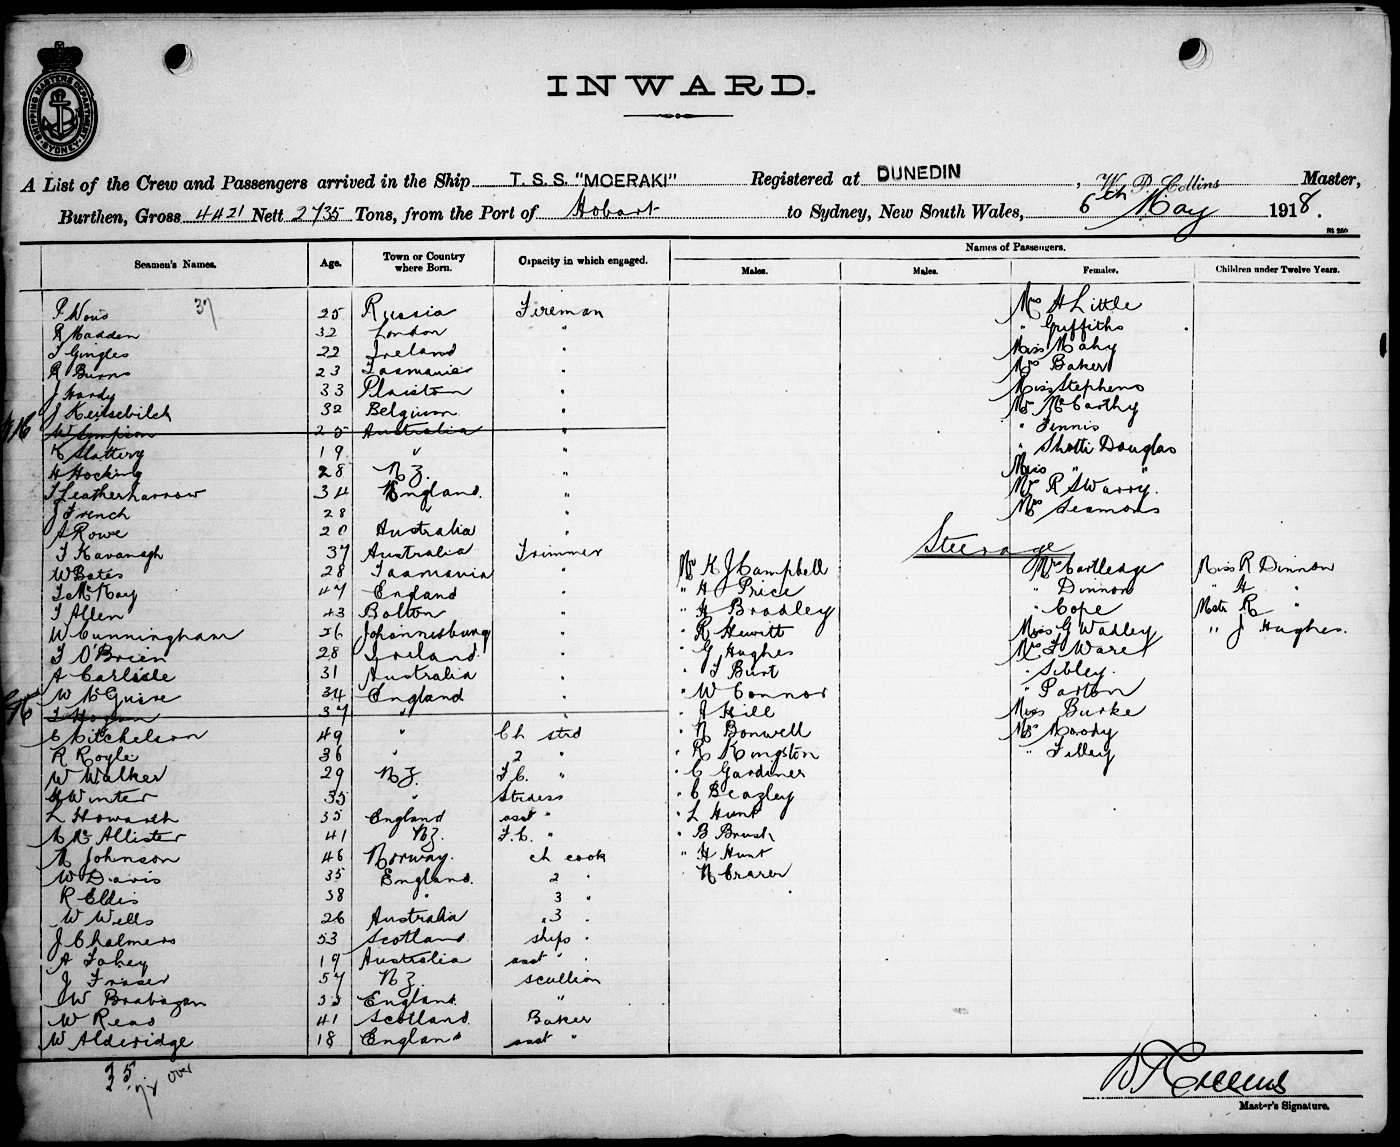 INWARD.
SHIPPING MASTERS DEPARTMENT SYDNEY
A List of the Crew and Passengers arrived in the Ship T. S. S. "MOERAKI" Registered at DUNEDIN, W. P. Collins Master,
Burthen, Gross 4421 Nett 2735 Tons, from the Port of Hobart to Sydney, New South Wales, 6th May 1918.
Names of Passengers.
Seamen's Names. Age. Town or Country where Born. Capacity in which engaged. Males. Males. Females. Children under Twelve Years.
37
25 Russia Fireman Mrs H Little
R Madden 32 London " " Griffiths
T Gingles 22 Ireland " Miss Mahy
R Burns 23 Tasmania " Mrs Baker
J Hardy 33 Plaistow " Miss Stephens
J 32 Belgium " Mrs McCarthy
W Simpson 25 Australia " " Tennis
Slattery 19 " " " Shotti Douglas
H Hocking 28 N Z. " Miss " "
T Leatherbarrow 34 England. " Mrs R S Warry.
J French 28 " " Mrs Sesmons
A Rowe 20 Australia "
Steerage
T Kavanagh 37 Australia Trimmer
W Bates 28 Tasmania " Mr H J Campbell Mrs Cartledge Miss R Dinnon
T McKay 47 England " " H Price " Dinnon " H "
T Allen 43 Bolton " " H Bradley " Cope Mstr R "
W Cunningham 36 Johannesburg " " R Hewitt Miss G Wadley " J Hughes.
T O'Brien 28 Ireland " " G Hughes Mrs F Ware
A Carlisle 31 Australia " " T Burt " Sibley
W McGuire 34 England " " W Connor " Parton
T Hogan 37 " " " A Hill Miss Burke
C Mitchelson 49 " Ch std " N Bonwell Mrs Moody
R Royle 36 " 2 " " R Kingston " Tilley
W Walker 29 N Z. F.C. " " C Gardiner
Winter 35 " Stdess " C Beazley
L Howarth 35 England asst " " L Hunt
McAllister 41 NZ. F.C. " " B Brush
N Johnson 46 Norway. ch cook " H Hunt
W Davis 35 England. 2 " " N
R Ellis 38 " 3 "
W Wells 26 Australia 3 "
J Chalmers 53 Scotland ships "
A Fahey 19 Australia asst "
J Fraser 57 N Z. scullion
W Brabazon 33 England "
W Reas 41 Scotland Baker
W Alderidge 18 England asst "
35 over
W P Collins
Master's Signature.